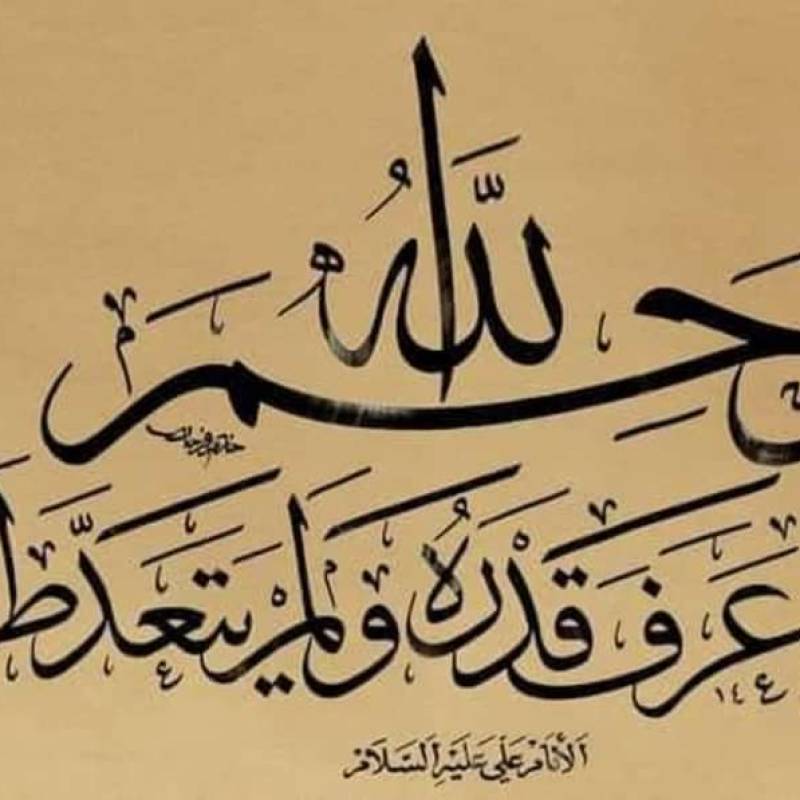 رَحِمَ اللَّهُ
عَرَفَ قَدْرَهُ وَلَمْ يَتَعَدَّ ط
الامام علي عليه السلام